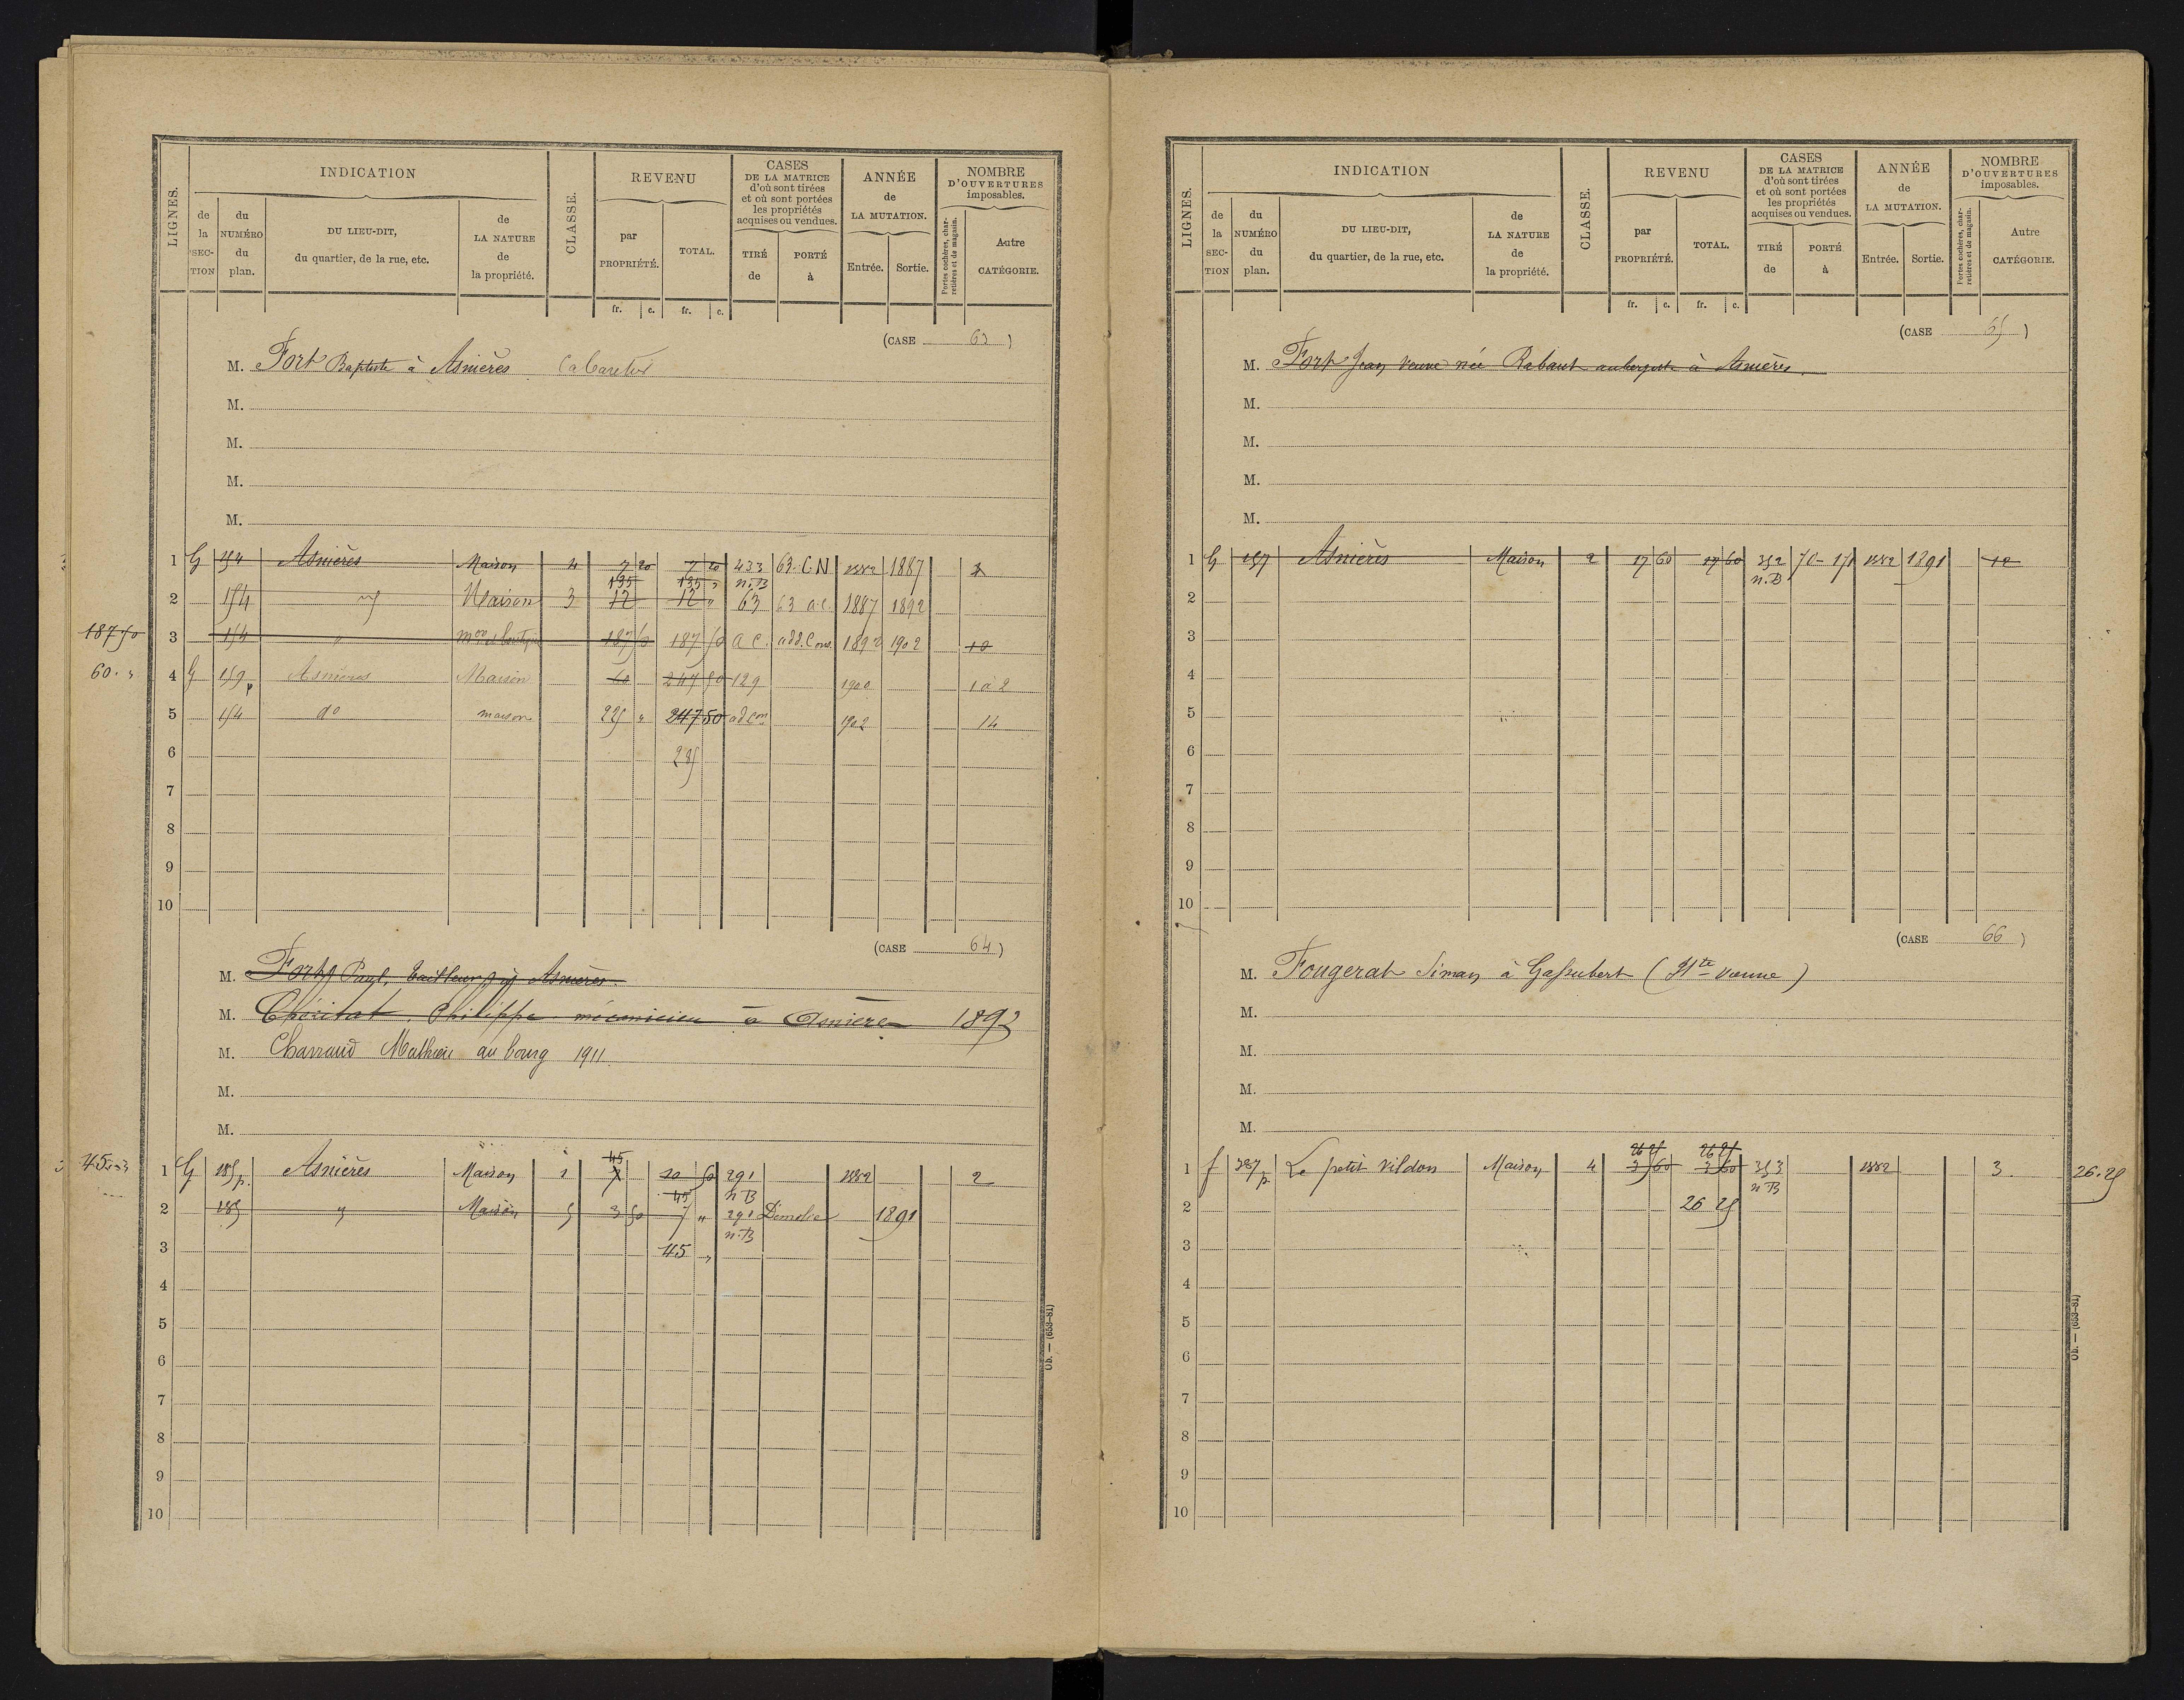 LIGNES.
INDICATION
de la SECTION
du NUMÉRO du plan.
DU LIEU-DIT, du quartier, de la rue, etc.
de LA NATURE de la propriété.
CLASSE.
REVENU
par PROPRIÉTÉ.
TOTAL.
CASES DE LA MATRICE d'où sont tirées et où sont portées les propriétés acquises ou vendues.
TIRÉ de
PORTÉ à
ANNÉE de LA MUTATION.
Entrée. Sortie.
NOMBRE D'OUVERTURES imposables.
Portes cochères, charretières et de magasin.
Autre CATÉGORIE.
fr. c. fr. c.
(CASE 63)
M. Fort Baptiste à Asnières Cabaretier
M.
M.
M.
M.
1 G 154 Asnières Maison 4 7 20 7 20 433 63. C.N 1882 1887
135 135 " n.B
2 154 Maison 3 12 12 " 63 63 a.c. 1887 1892
187 50 3 154 " 187 50 187 50 a c. add. Con. 1892 1902 10
60. " 4 G 159 p Asnières Maison 60 247 50 129 1900 1 à 2
5 154 do maison 225 " 247 50 ad con 1902 14
6 285
7
8
9
10
(CASE 64)
M. Fort Paul, tailleur, à Asnières.
M. Chéritat, Philippe mécanicien à Asnières 1893
M. Charraud Mathieu au bourg 1911
M.
M.
45
45 " 1 G 185 p. Asnières Maison 1 7 10 50 291 1882 2
45 n B
2 185 " Maison 5 3 50 7 " 291 Démolie 1891
n.B
3 45 "
4
5
6
7
8
9
10
Ob. — (653-81)
LIGNES.
INDICATION
de la SECTION
du NUMÉRO du plan.
DU LIEU-DIT, du quartier, de la rue, etc.
de LA NATURE de la propriété.
CLASSE.
REVENU
par PROPRIÉTÉ.
TOTAL.
CASES DE LA MATRICE d'où sont tirées et où sont portées les propriétés acquises ou vendues.
TIRÉ de
PORTÉ à
ANNÉE de LA MUTATION.
Entrée. Sortie.
NOMBRE D'OUVERTURES imposables.
Portes cochères, charretières et de magasin.
Autre CATÉGORIE.
fr. c. fr. c.
(CASE 65)
M. Fort Jean veuve née Rabaut aubergiste à Asnières.
M.
M.
M.
M.
1 G 157 Asnières Maison 2 17 60 17 60 352 70-171 1882 1891 12
n.B
2
3
4
5
6
7
8
9
10
(CASE 66)
M. Fougerat Siman à Gassubert (Hte vienne)
M.
M.
M.
M.
26 25 26 25
1 f 387 p Le petit Vildon Maison 4 3 60 3 60 353 1882 3. 26.25
n B
2 26 25
3
4
5
6
7
8
9
10
Ob. — (653-81)